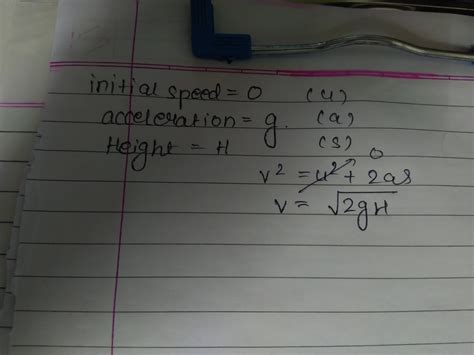 initial speed = 0 (u)
acceleration = g. (a)
Height = H (s)
0
v² = u² + 2as
v = √2gH